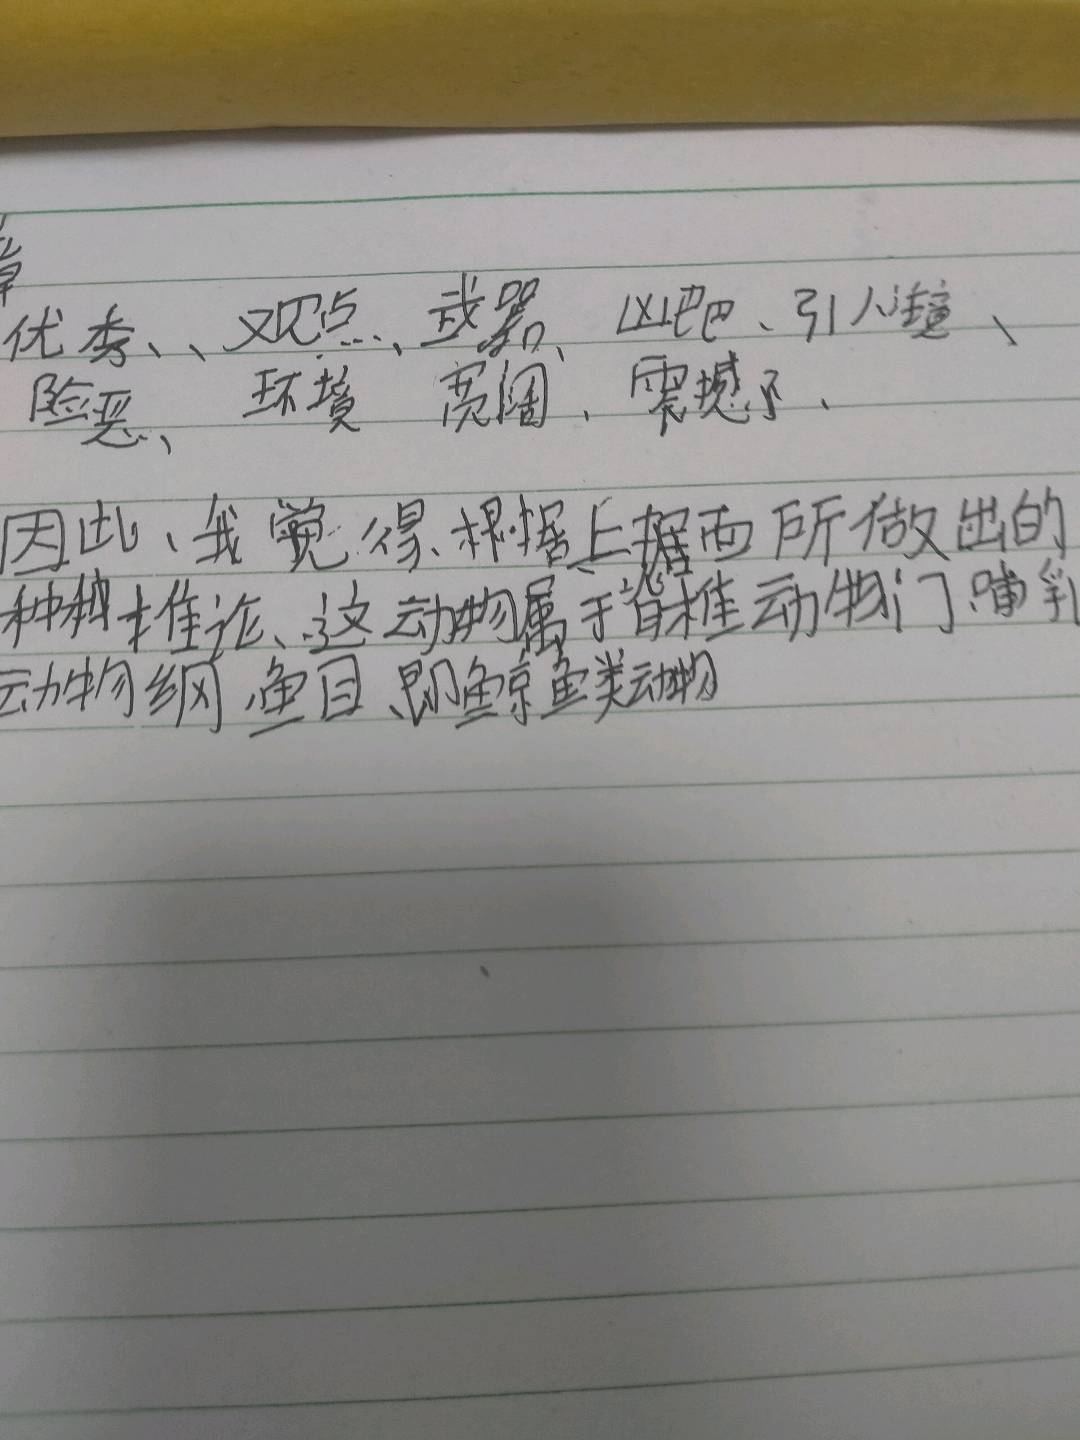 优秀、、观点、武器、凶巴巴、引人注意、
险恶、环境 宽阔、震撼了、
因此、我觉得、根据上据面所做出的
种种推论、这动物属于脊椎动物门、哺乳
动物纲、鱼目、即鲸鱼类动物